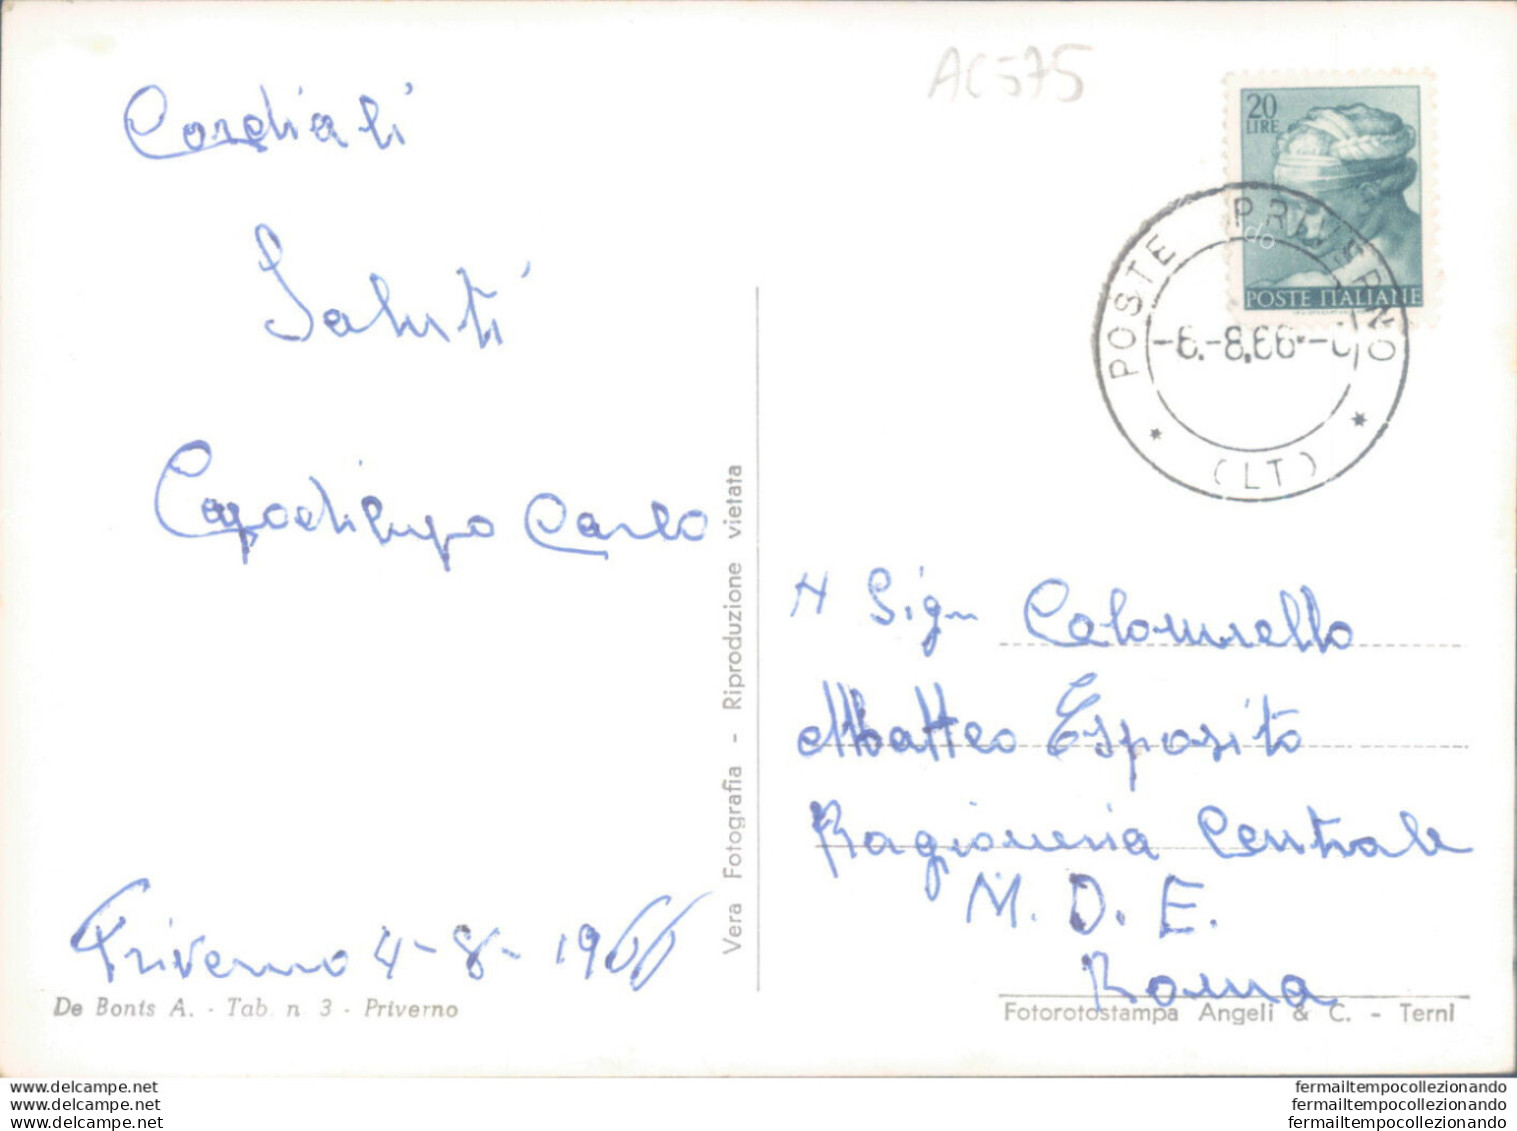 AC575
20
LIRE
POSTE ITALIANE
POSTE PRIVERNO
-6.-8.66.-
(LT)
Cordiali
Saluti
Capodilupo Carlo
Priverno 4-8-1966
De Bonis A. - Tab. n. 3 - Priverno
Vera Fotografia - Riproduzione vietata
Al Sign Colonnello
Matteo Esposito
Ragioneria Centrale
M.D.E.
Roma
Fotorotostampa Angeli & C. - Terni
www.delcampe.net
www.delcampe.net
www.delcampe.net
fermailtempocollezionando
fermailtempocollezionando
fermailtempocollezionando